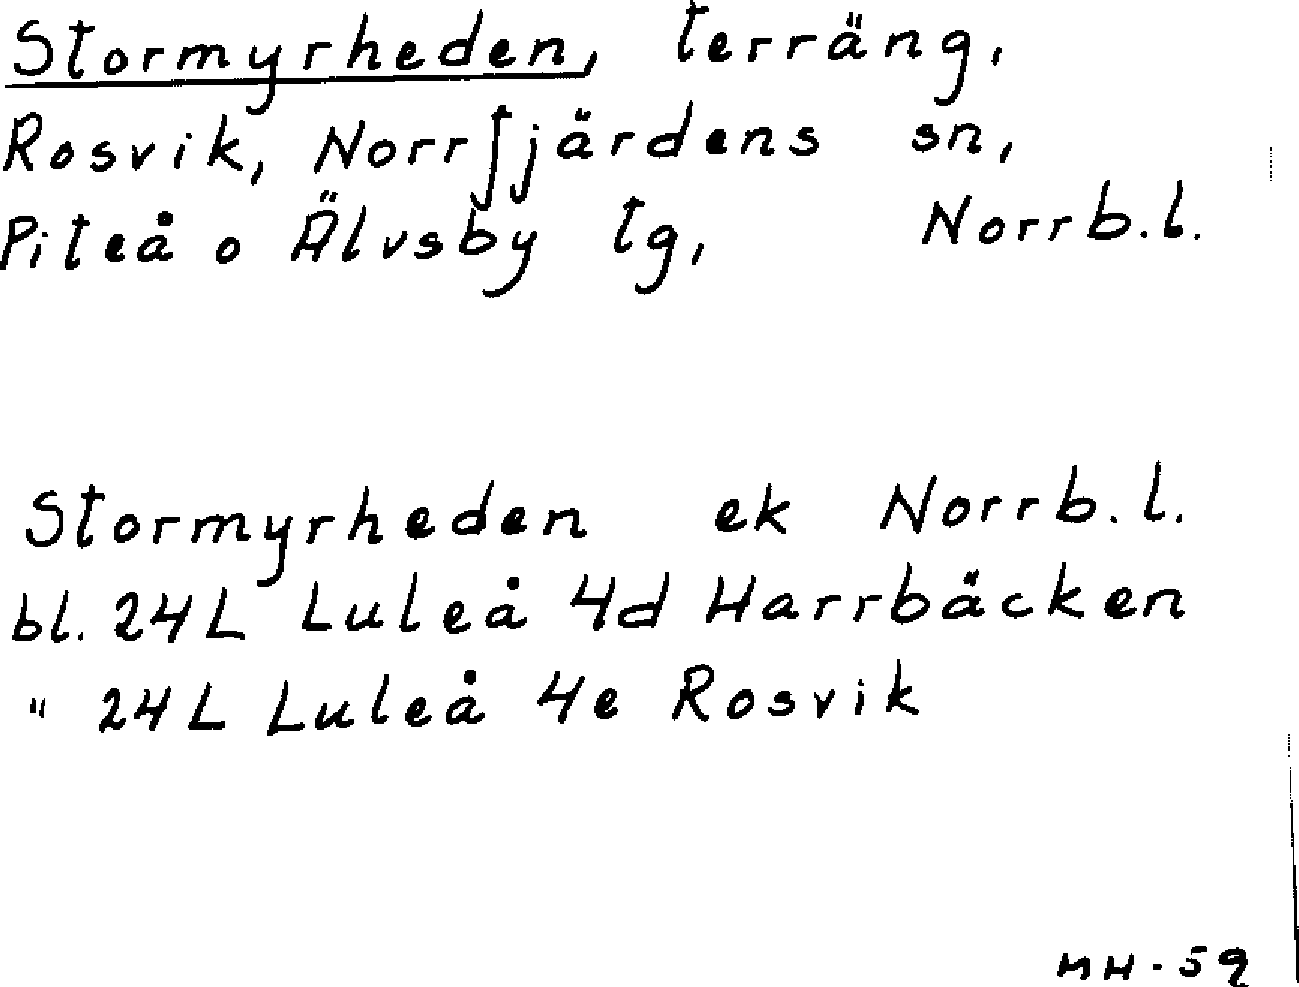 Stormyrheden, terräng,
Rosvik, Norrfjärdens sn,
Piteå o Älvsby tg, Norrb.l.
Stormyrheden ek Norrb.l.
bl. 24L Luleå 4d Harrbäcken
" 24L Luleå 4e Rosvik
MH-59